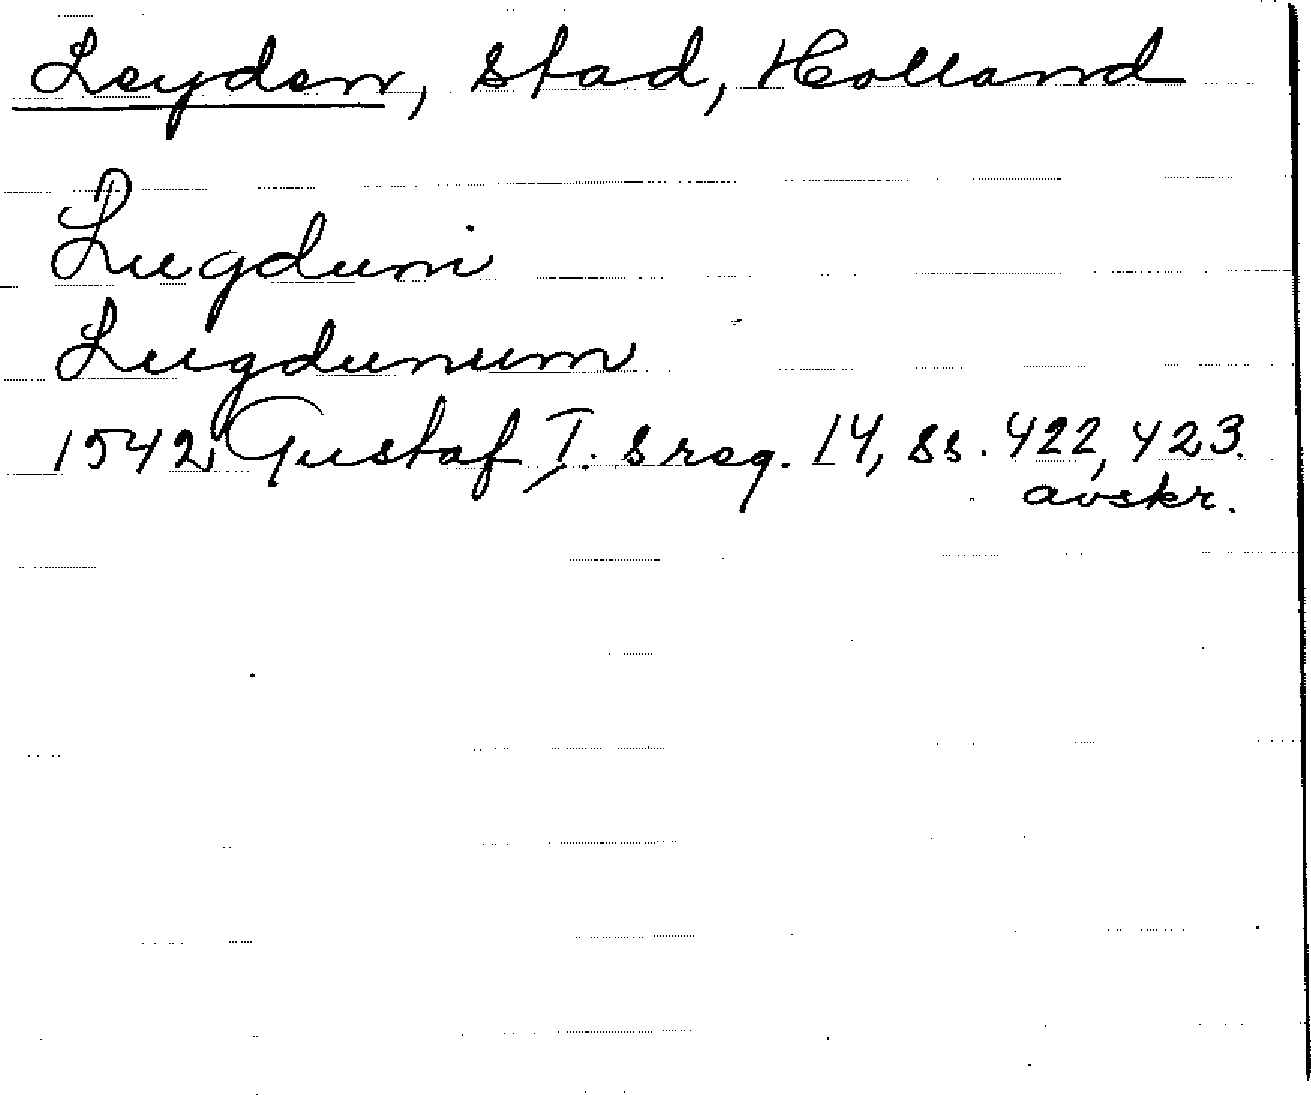 Leyden, stad, Holland
Lugduni
Lugdunum
1542 Gustaf I:s reg. 14, ss. 422, 423.
avskr.